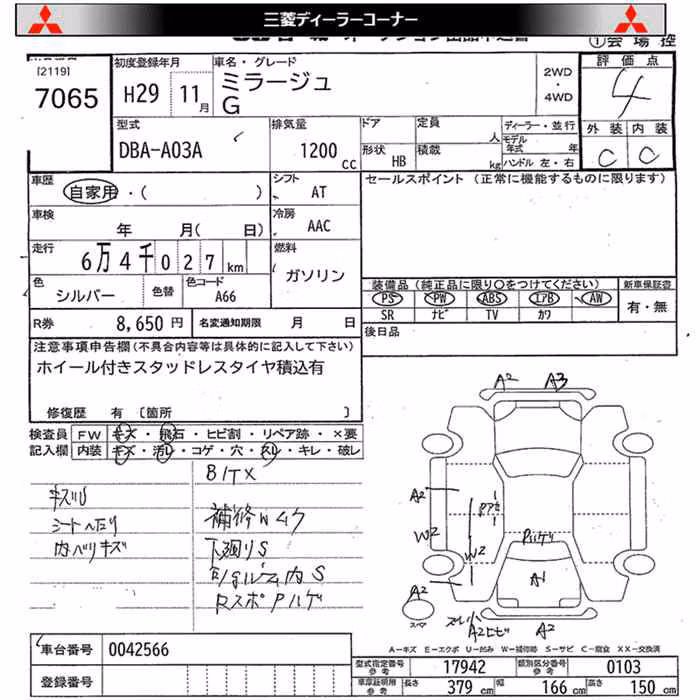 三菱ディーラーコーナー
①会場控
[2119]
7065
初度登録年月
H29 11月
車名・グレード
ミラージュ
G
2WD
・
4WD
評価点
4
型式
DBA-A03A
排気量
1200 CC
ドア
定員 人
ディーラー・並行
モデル年式 年
形状 HB
積載 kg
ハンドル 左・右
外装 内装
C C
車歴
自家用・( )
シフト
AT
セールスポイント (正常に機能するものに限ります)
車検
年 月( 日)
冷房
AAC
走行
6万4千027km
燃料
ガソリン
色
シルバー
色替
色コード
A66
装備品(純正品に限り○をつけてください)
新車保証書
PS PW ABS エアB AW
有・無
SR ナビ TV カワ
R券 8,650円
名変通知期限 月 日
後日品
注意事項申告欄(不具合内容等は具体的に記入して下さい)
ホイール付きスタッドレスタイヤ積込有
修復歴 有〔箇所 〕
検査員 FW キズ・飛石・ヒビ割・リペア跡・×要
記入欄 内装 キズ・汚レ・コゲ・穴・スレ・キレ・破レ
キズU
シートヘたり
内ベリキズ
補修Wムラ
下廻りS
RスポPハゲ
A2 A3
A2
W2
W2
Pハゲ
A1
A2
スペア
A2ヒビ
A2
A-キズ E-エクボ U-凹み W-補修跡 S-サビ C-腐食 XX-交換済
車台番号 0042566
登録番号
型式指定番号参考 17942
類別区分番号参考 0103
車庫証明用参考 長さ 379cm 幅 166cm 高さ 150cm